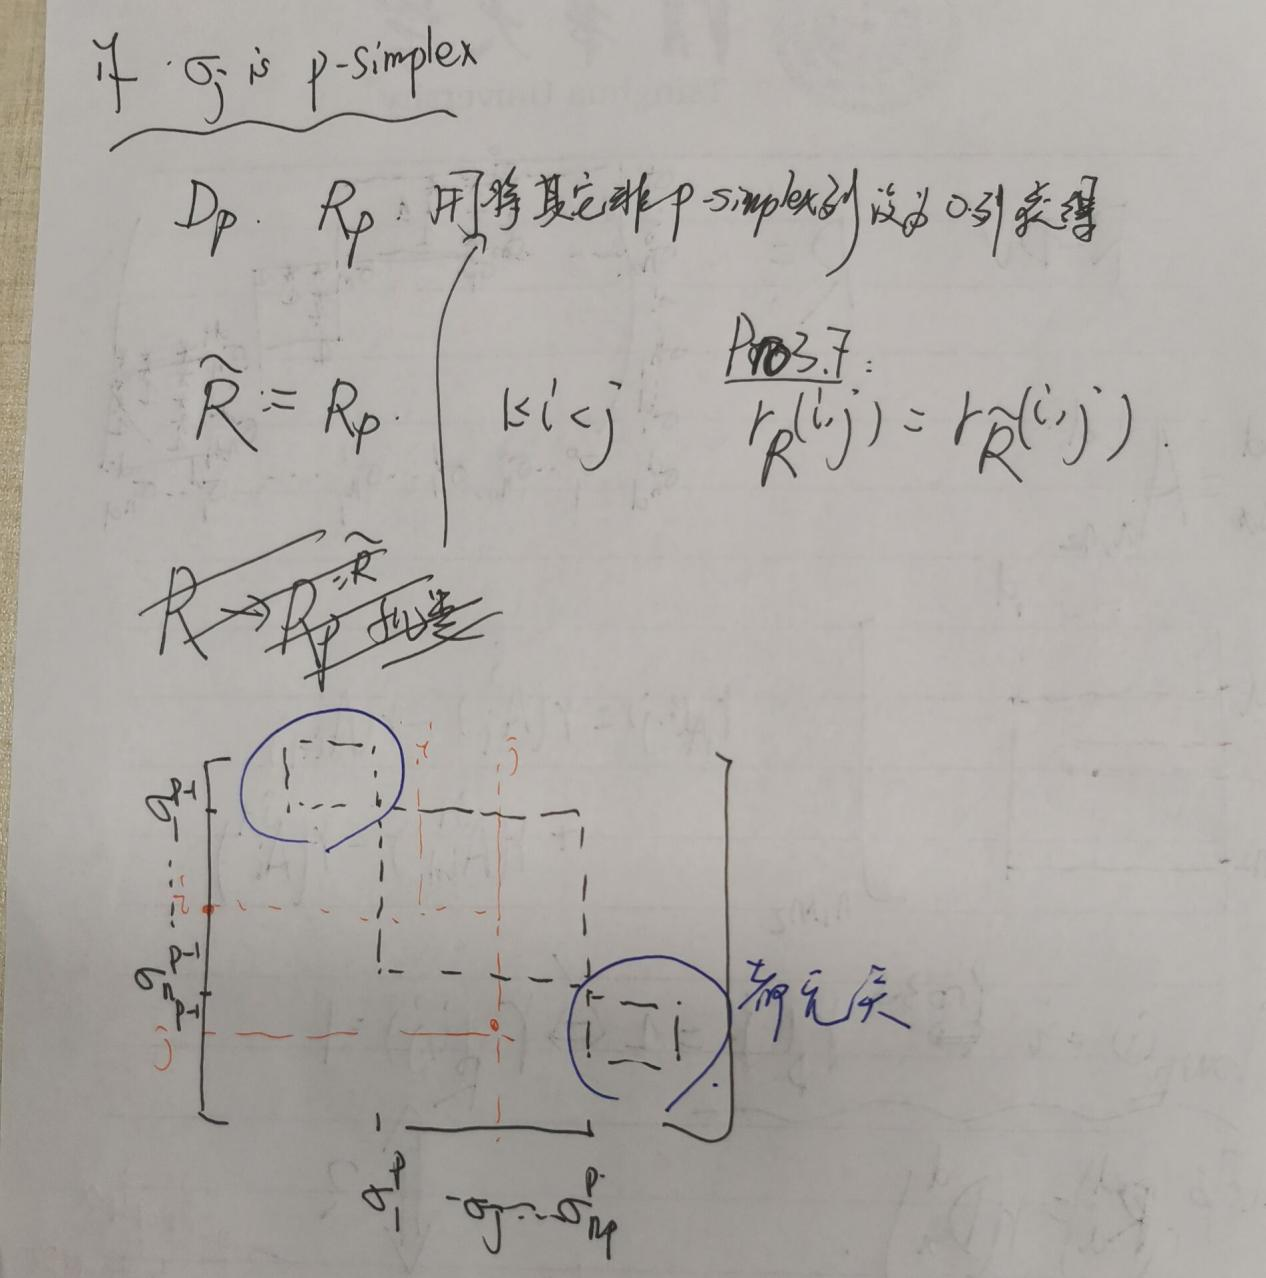 if σⱼ is p-simplex
Dₚ. Rₚ: 用将其它非p-simplex列设为0列获得
R̃ := Rₚ. 1≤i<j
Pro3.7:
r_R(i,j) = r_R̃(i,j).
R → Rₚ =: R̃
i j
σ₁^{p-1}
i
σ^{p-1}_{n_{p-1}}
j
都无关
σ₁^p σⱼ … σ^p_{n_p}